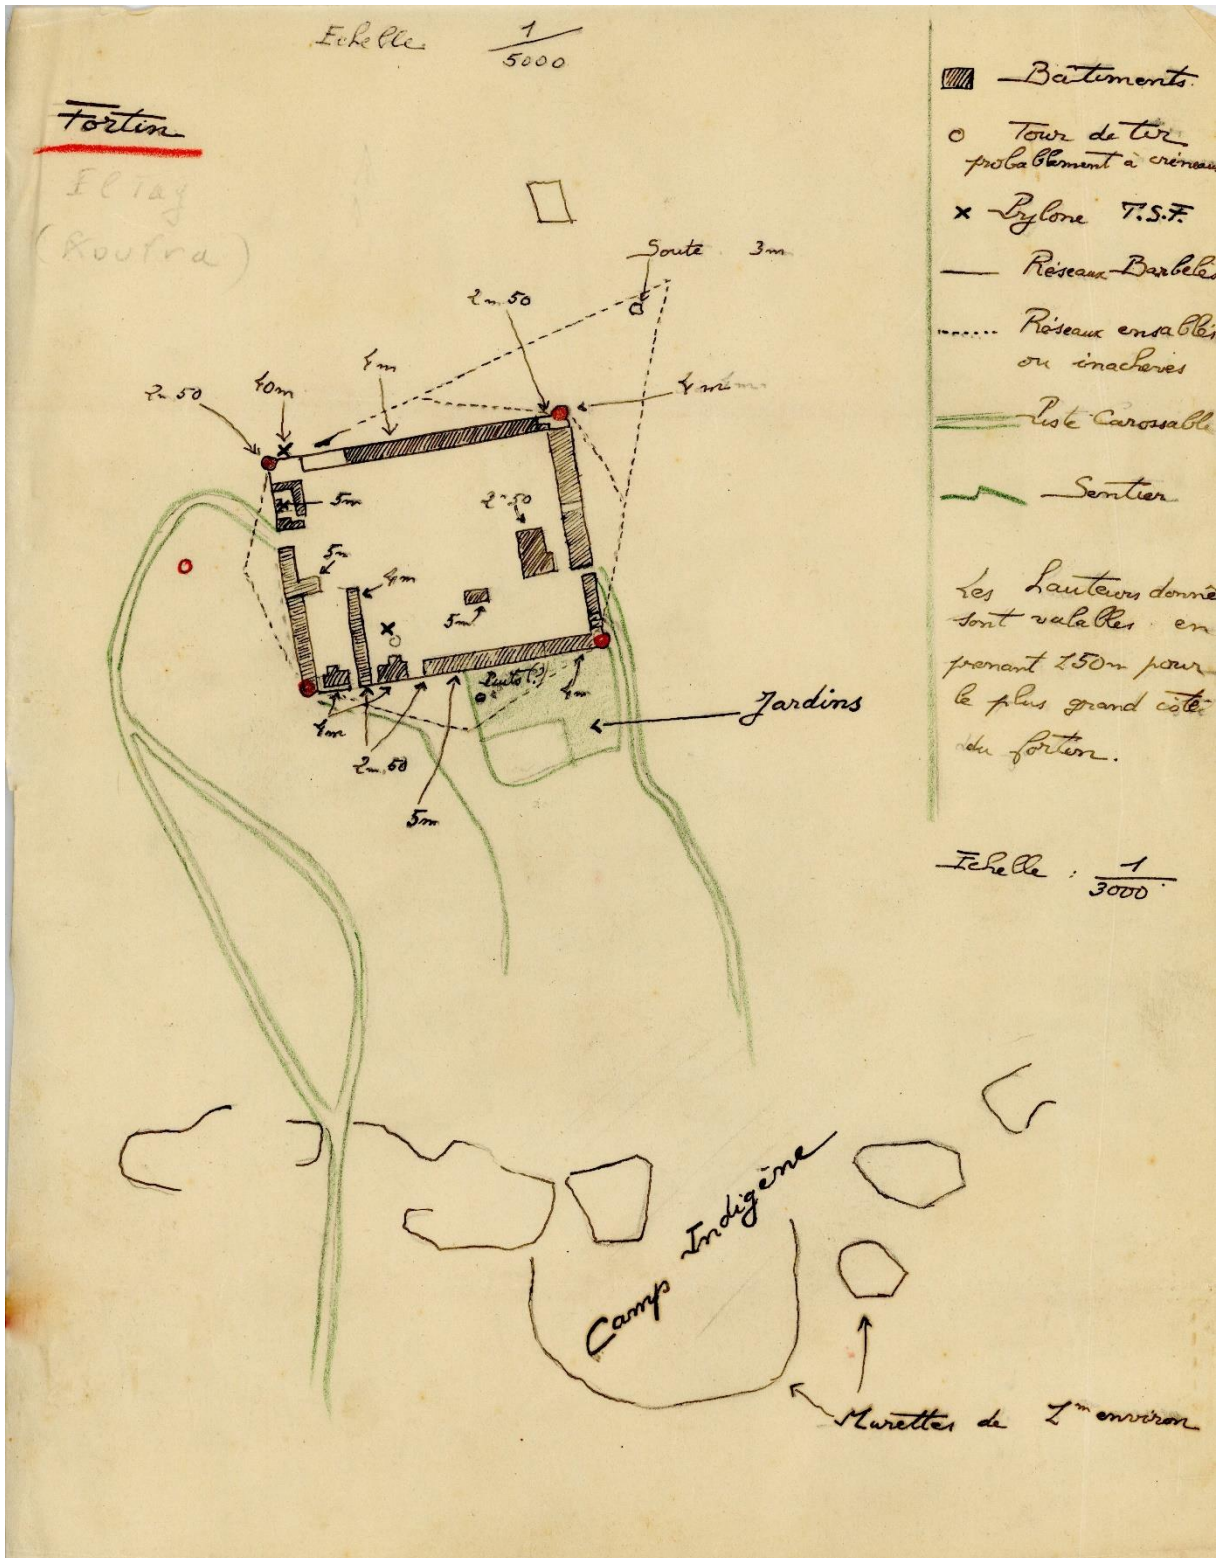 Echelle 1/5000
Fortin
El Tag
(Koufra)
Soute 3m
2m50
4m
2m50
40m
4m
5m
2m50
5m
4m
5m
Puits (?)
4m
4m
2m.50
5m
Jardins
Camp Indigène
Murettes de 1m environ
Bâtiments
Tour de tir
probablement à créneau
Pylone T.S.F.
Réseaux Barbelés
Réseaux ensablés
ou inachevés
Piste Carossable
Sentier
Les hauteurs donné
sont valables en
prenant 150m pour
le plus grand côté
du fortin.
Echelle : 1/3000